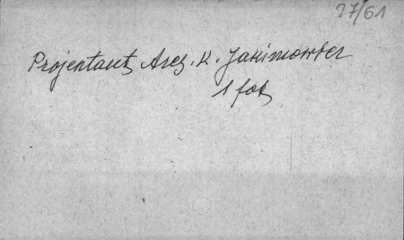 27/61
Projektant, Arch. K. Jakimowicz
1 fot,